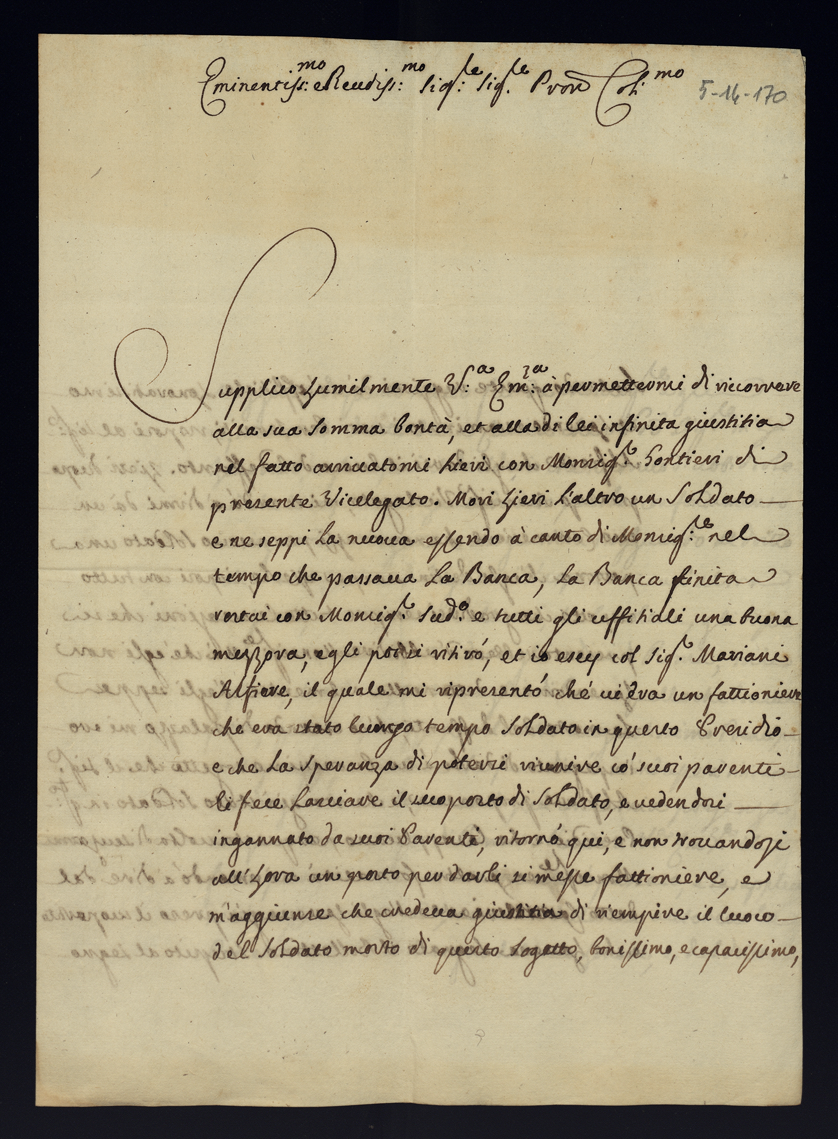 Eminentiss:mo e Reudiss:mo Sig:re Sig.re Pron Col:mo
5-14-170
Supplico humilmente V:a Em:za à permettermi di ricorrere
alla sua somma bontà, et alla di lei infinita giustitia
nel fatto arriuatomi hieri con Monsig.r Gontieri di
presente Vicelegato. Mori hieri l'altro un Soldato
e ne seppi la nuoua essendo à canto di Monsig:re nel
tempo che passaua la Banca, la Banca finita
restai con Monsig.r Sud.o e tutti gli uffitiali una buona
mezzora, egli poi si ritirò, et io escy col Sig.r Mariani
Alfiere, il quale mi ripresentò ché ui era un fattioniere
che era stato lungo tempo Soldato in questo Presidio
e che la speranza di potersi riunire co' suoi parenti
li fece lasciare il suo posto di Soldato, e uedendosi
ingannato da suoi Parenti, ritornò qui, e non trouandosi
all'hora un posto per darli si messe fattioniere, e
m'aggiunse che credeua giustitia di riempire il luoco
del Soldato morto di questo sogetto, bonissimo, e capacissimo,